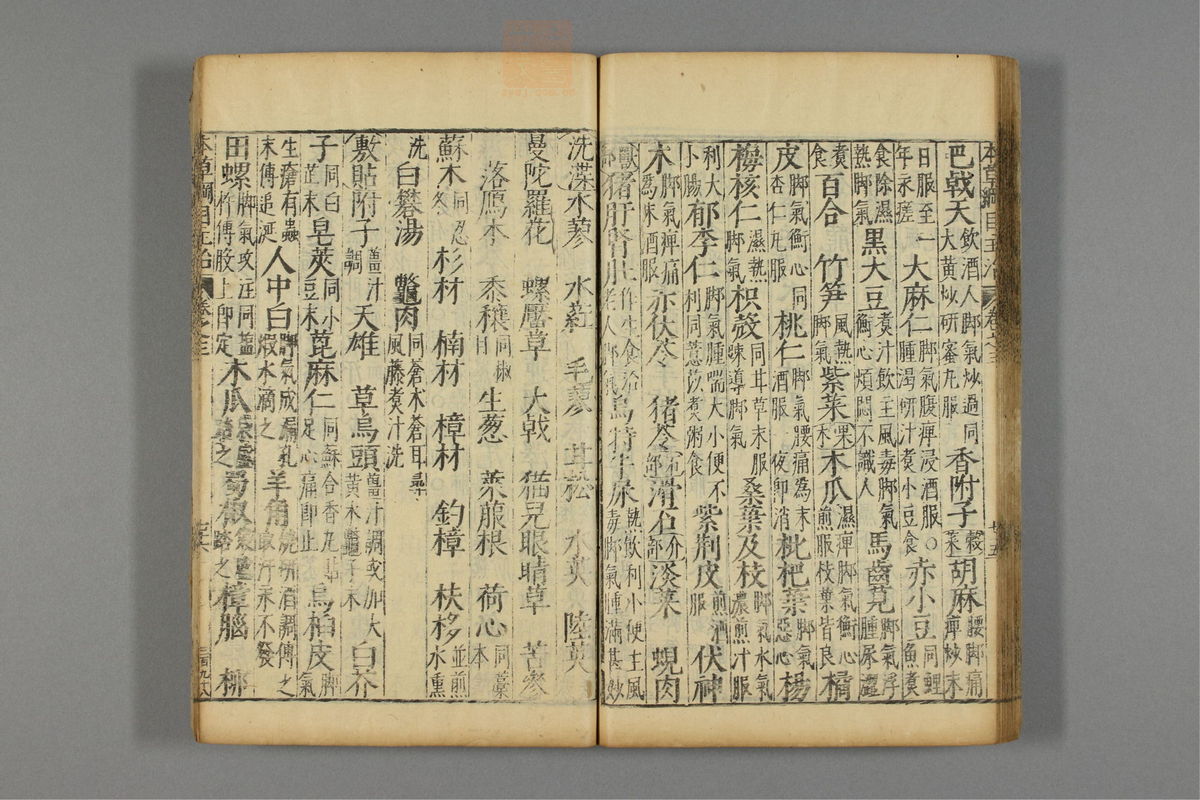 本草綱目主治 卷之三 廿五
巴戟天飲酒人脚氣炒過同大黃炒研蜜丸服香附子穀菜胡麻腰脚痛痺炒末
日服至一年永瘥大麻仁脚氣腹痺浸酒服○腫渴研汁煮小豆食赤小豆同鯉魚煮
食除濕熱脚氣黑大豆煮汁飲主風毒脚氣衝心煩悶不識人馬齒莧脚氣浮腫尿澀
煮食百合 竹笋風熱脚氣紫菜果木木瓜濕痺脚氣衝心煎服枝葉皆良橘
皮脚氣衝心同杏仁丸服桃仁脚氣腰痛為末酒服一夜即消枇杷葉脚氣惡心楊
梅核仁濕熱脚氣枳殼同甘草末服疎導脚氣桑葉及枝脚氣水氣濃煎汁服
利大小腸郁李仁脚氣腫喘大小便不利同薏苡煮粥食紫荆皮煎酒服伏神
木脚氣痺痛為末酒服赤伏苓 猪苓滑石淡菜 蜆肉
獸部猪肝腎肚作生食治老人脚氣烏特牛尿熱飲利小便主風毒脚氣腫滿甚妙
洗渫水蓼 水葒 毛蓼 甘松 水英 陸英
曼陀羅花 螺厴草 大戟 猫兒眼睛草 苦參
落鴈木 黍穰同椒目 生葱 萊菔根 荷心同藁本
蘇木同忍冬 杉材 楠材 樟材 釣樟 扶栘並煎水熏
洗白礬湯 鼈肉同蒼朮蒼耳尋風藤煮汁洗
敷貼附子薑汁調天雄 草烏頭薑汁調或加大黃木鼈子末白芥
子同白芷末皂莢同小豆末蓖麻仁同蘇合香丸貼足心痛即止烏桕皮脚氣
生瘡有蟲末傅追涎人中白脚氣成漏孔煅水滴之羊角燒研酒調傅之取汗永不發
田螺脚氣攻注同鹽傅股上即定木瓜袋盛踏之蜀椒袋盛踏之樟腦 柳
本草綱目主治 卷之三 廿六